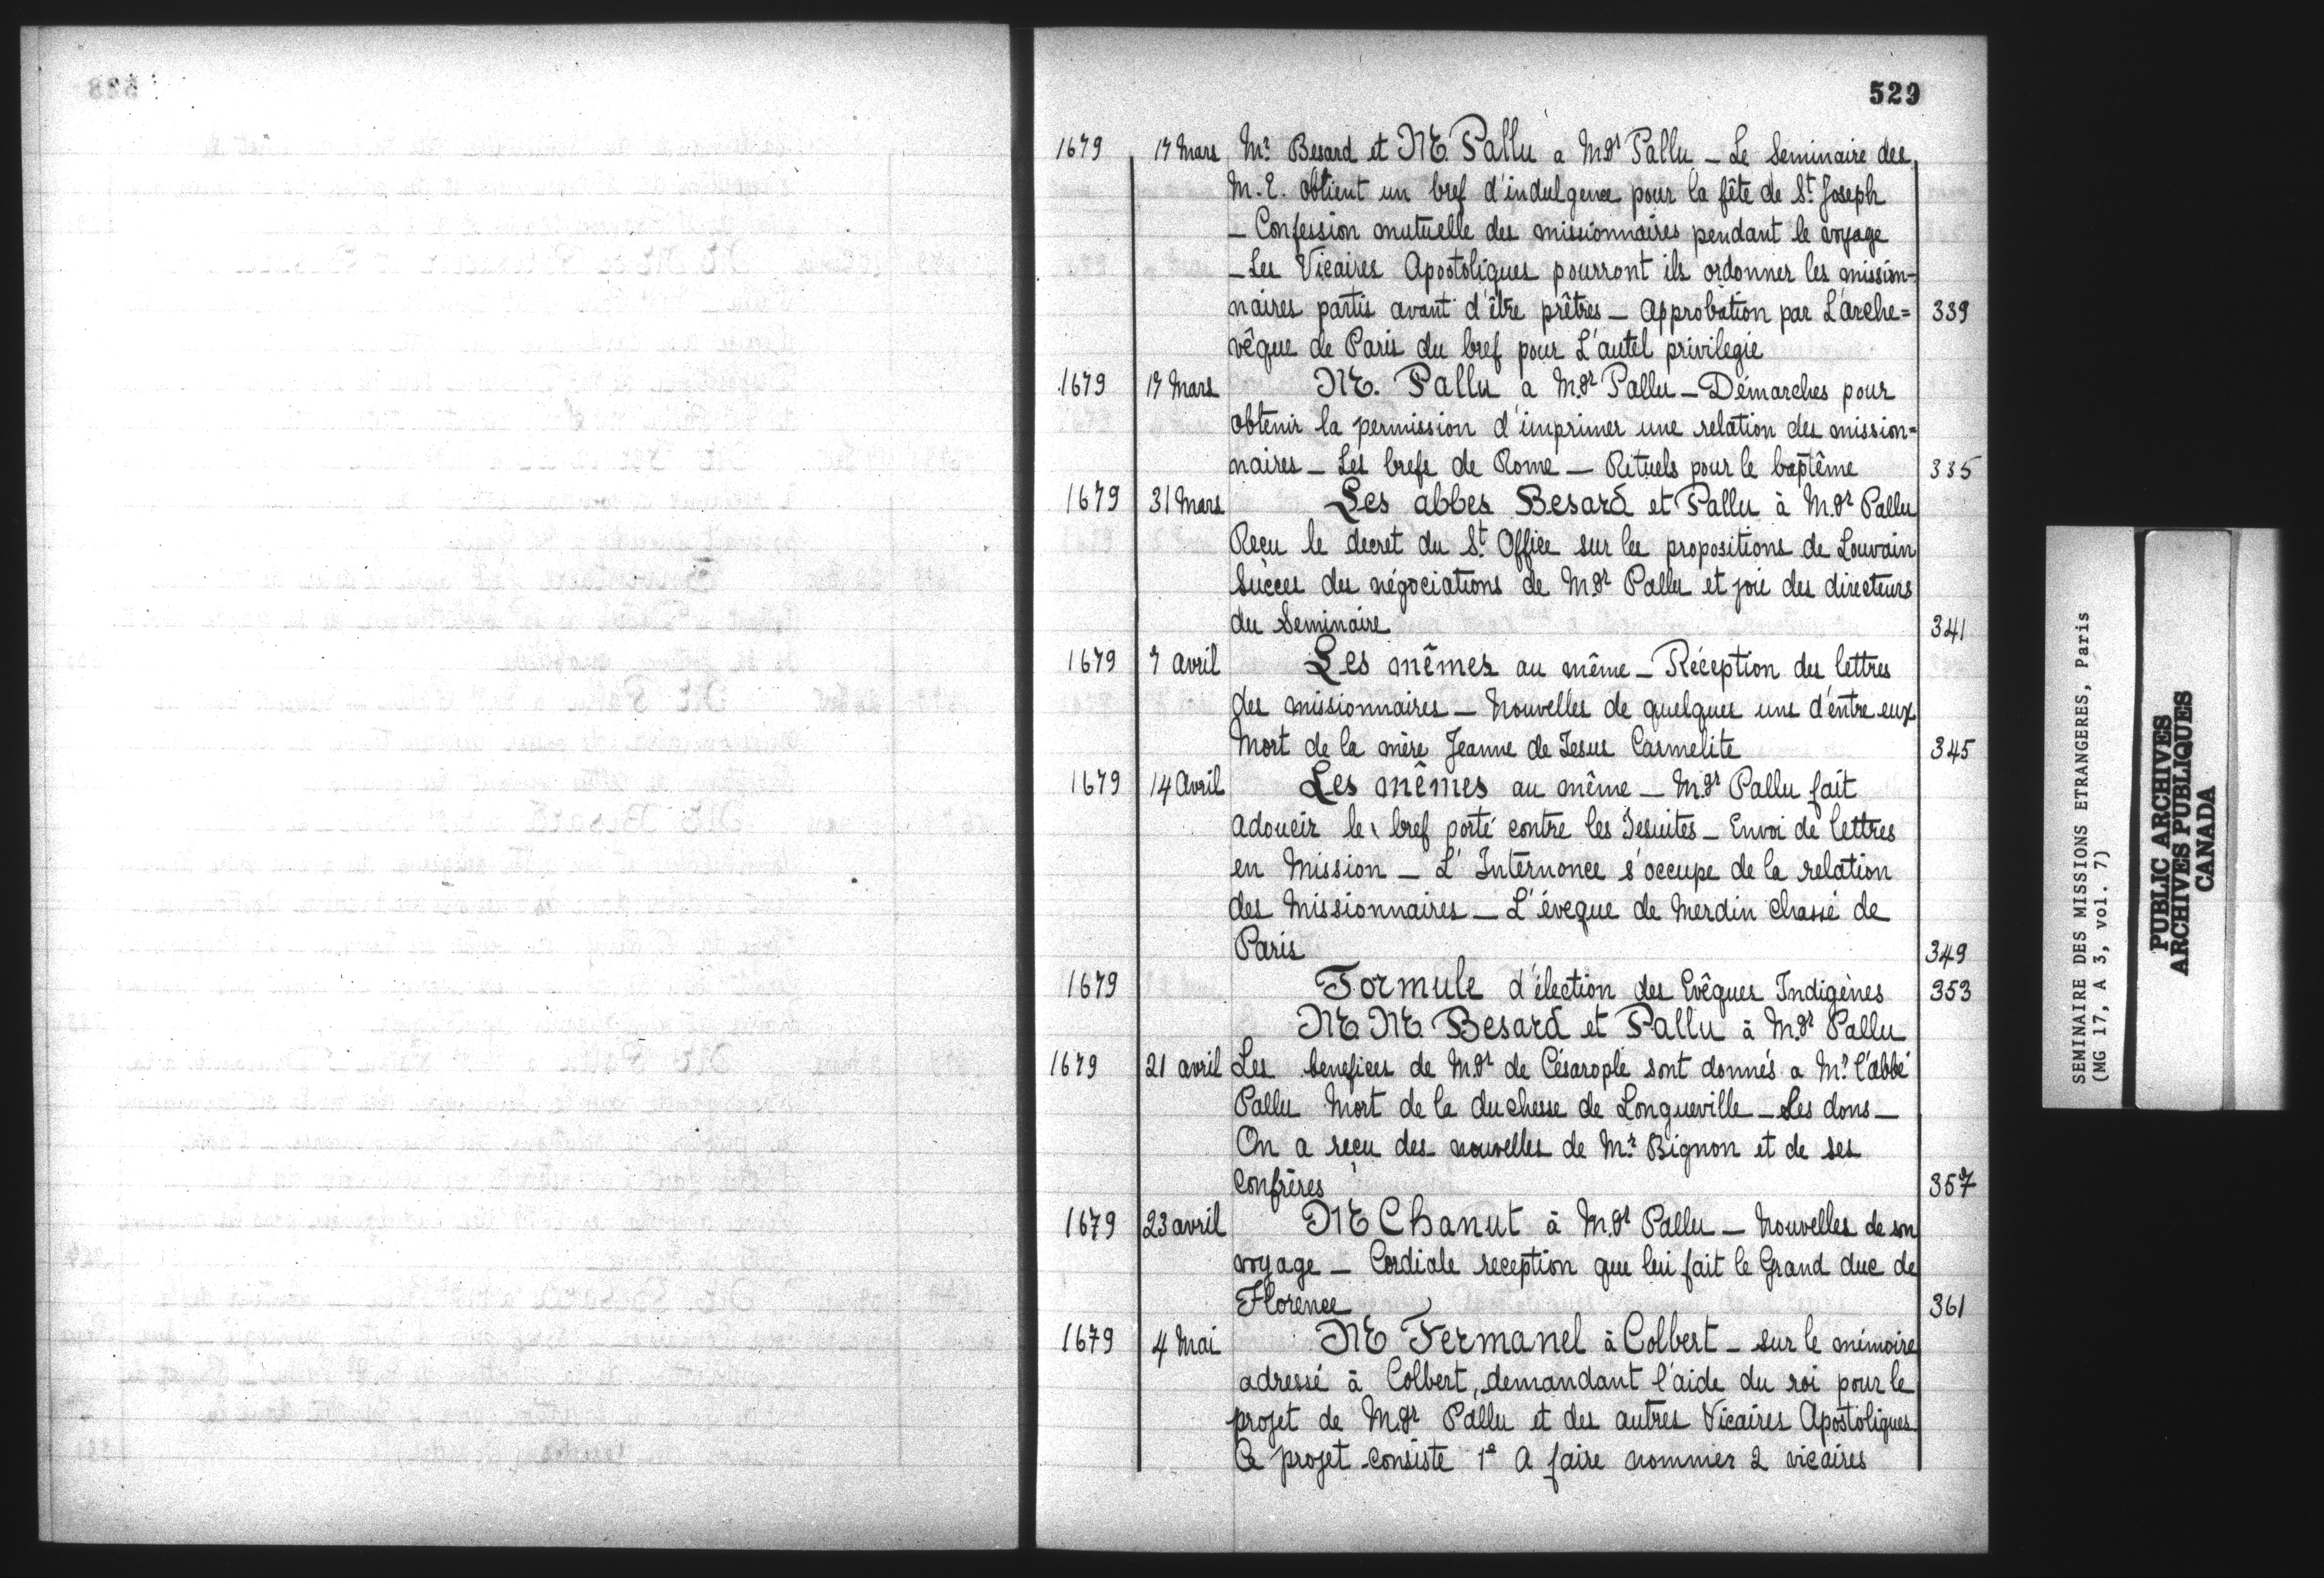 529
1679 17 Mars Mr Besard et Mr. Pallu a Mgr Pallu _ Le Seminaire des
M.E. obtient un bref d'indulgence pour la fête de St Joseph
_ Confession mutuelle des missionnaires pendant le voyage
_ Les Vicaires Apostoliques pourront ils ordonner les mission-
naires partis avant d'être prêtres _ Approbation par L'arche= 339
vêque de Paris du bref pour L'autel privilegié
1679 17 Mars Mr. Pallu a Mgr Pallu _ Démarches pour
obtenir la permission d'imprimer une relation des mission=
naires _ Les brefs de Rome _ Rituels pour le baptême 335
1679 31 Mars Les abbes Besard et Pallu à Mgr Pallu
Reçu le decret du St Office sur les propositions de Louvain
Succes des négociations de Mgr Pallu et joie des directeurs
du Seminaire 341
1679 7 avril Les mêmes au même _ Réception des lettres
des missionnaires _ Nouvelles de quelques uns d'entre eux
Mort de la mère Jeanne de Jesus Carmelite 345
1679 14 Avril Les mêmes au même _ Mgr Pallu fait
adoucir le bref porté contre les Jesuites _ Envoi de lettres
en Mission _ L'Internonce s'occupe de la relation
des Missionnaires _ L'éveque de Merdin chassé de
Paris 349
1679 Formule d'élection des Evêques Indigènes 353
Mr Mr. Besard et Pallu à Mgr Pallu
1679 21 avril Les benefices de Mgr de Césarople sont donnés a Mr l'abbé
Pallu Mort de la duchesse de Longueville _ Les dons _
On a reçu des nouvelles de Mr Bignon et de ses
Confrères 357
1679 23 avril Mr Chanut à Mgr Pallu _ Nouvelles de son
voyage _ Cordiale reception que lui fait le Grand duc de
Florence 361
1679 4 Mai Mr Fermanel à Colbert _ sur le mémoire
adressé à Colbert, demandant l'aide du roi pour le
projet de Mgr Pallu et des autres Vicaires Apostoliques
Ce projet consiste 1º A faire nommer 2 vicaires
SEMINAIRE DES MISSIONS ETRANGERES, Paris
(MG 17, A 3, vol. 7)
PUBLIC ARCHIVES
ARCHIVES PUBLIQUES
CANADA